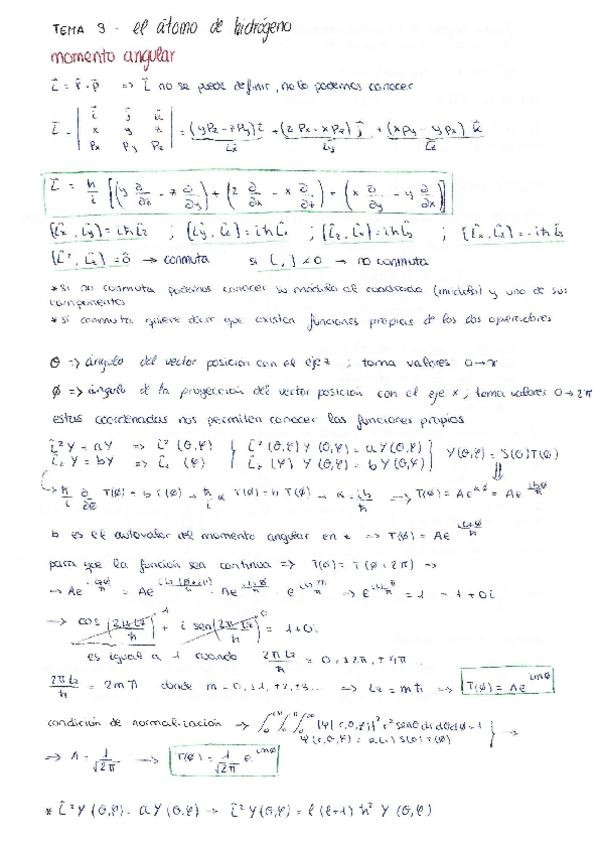 TEMA 9 - el átomo de hidrógeno
momento angular
L̂ = r̂ · p̂ ⇒ L̂ no se puede definir, no lo podemos conocer
L̂ = | i j k ; x y z ; Px Py Pz | = (yPz - zPy) i + (z Px - xPz) j + (xPy - yPx) k
Lx Ly Lz
L̂ = ħ/i [(y ∂/∂z - z ∂/∂y) + (z ∂/∂x - x ∂/∂z) + (x ∂/∂y - y ∂/∂x)]
[L̂x, L̂y] = iħ L̂z ; [L̂y, L̂z] = iħ L̂x ; [L̂z, L̂x] = iħ L̂y ; [L̂x, L̂z] = -iħ L̂y
[L̂², L̂z] = 0̂ → conmuta si [ , ] ≠ 0 → no conmuta
* si no conmuta podemos conocer su módulo al cuadrado (módulo) y uno de sus
componentes
* si conmuta quiere decir que existen funciones propias de los dos operadores
θ ⇒ ángulo del vector posición con el eje z ; toma valores 0→π
ϕ ⇒ ángulo de la proyección del vector posición con el eje x ; toma valores 0→2π
estas coordenadas nos permiten conocer las funciones propias
L̂² Y = aY ⇒ L̂² (θ,φ) } L̂² (θ,φ) Y (θ,φ) = a Y (θ,φ) } Y(θ,φ) = S(θ) T(ϕ)
L̂z Y = bY ⇒ L̂z (φ) } L̂z (φ) Y (θ,φ) = b Y (θ,φ)
b es el autovalor del momento angular en z ⇒ T(ϕ) = Ae
para que la función sea continua ⇒ T(ϕ) = T(ϕ + 2π) →
→ cos (2π Lz/ħ) + i sen (2π Lz/ħ) = 1 + 0i
es igual a 1 cuando 2π Lz/ħ = 0, ±2π, ±4π...
2π Lz/ħ = 2mπ donde m = 0, ±1, ±2, ±3... ⇒ Lz = mħ ⇒ T(ϕ) = Ae^imϕ
condición de normalización →
⇒ A = 1/√2π → T(ϕ) = 1/√2π e^imϕ
* L̂² Y (θ,φ) = a Y (θ,φ) → L̂² Y(θ,φ) = ℓ (ℓ+1) ħ² Y (θ,φ)